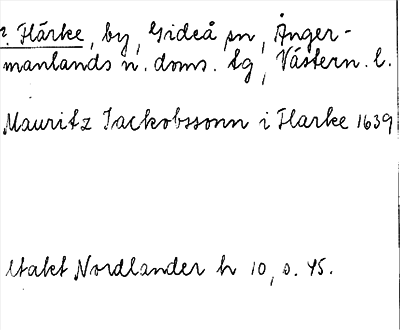 2. Flärke, by, Gideå sn, Ånger-
manlands n. doms. tg, Västern. l.
Mauritz Jackobssonn i Flarke 1639
Utakt Nordlander h 10, s. 45.